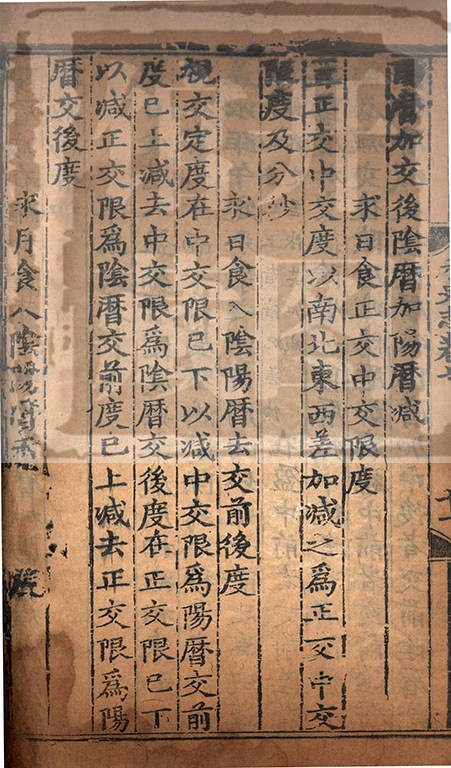 陽曆加交後陰曆加陽曆減
求日食正交中交限度
置正交中交度以南北東西差加減之爲正交中交
限度及分秒
求日食入陰陽曆去交前後度
視交定度在中交限已下以減中交限爲陽曆交前
度已上減去中交限爲陰曆交後度在正交限已下
以減正交限爲陰曆交前度已上減去正交限爲陽
曆交後度
求月食入陰陽曆